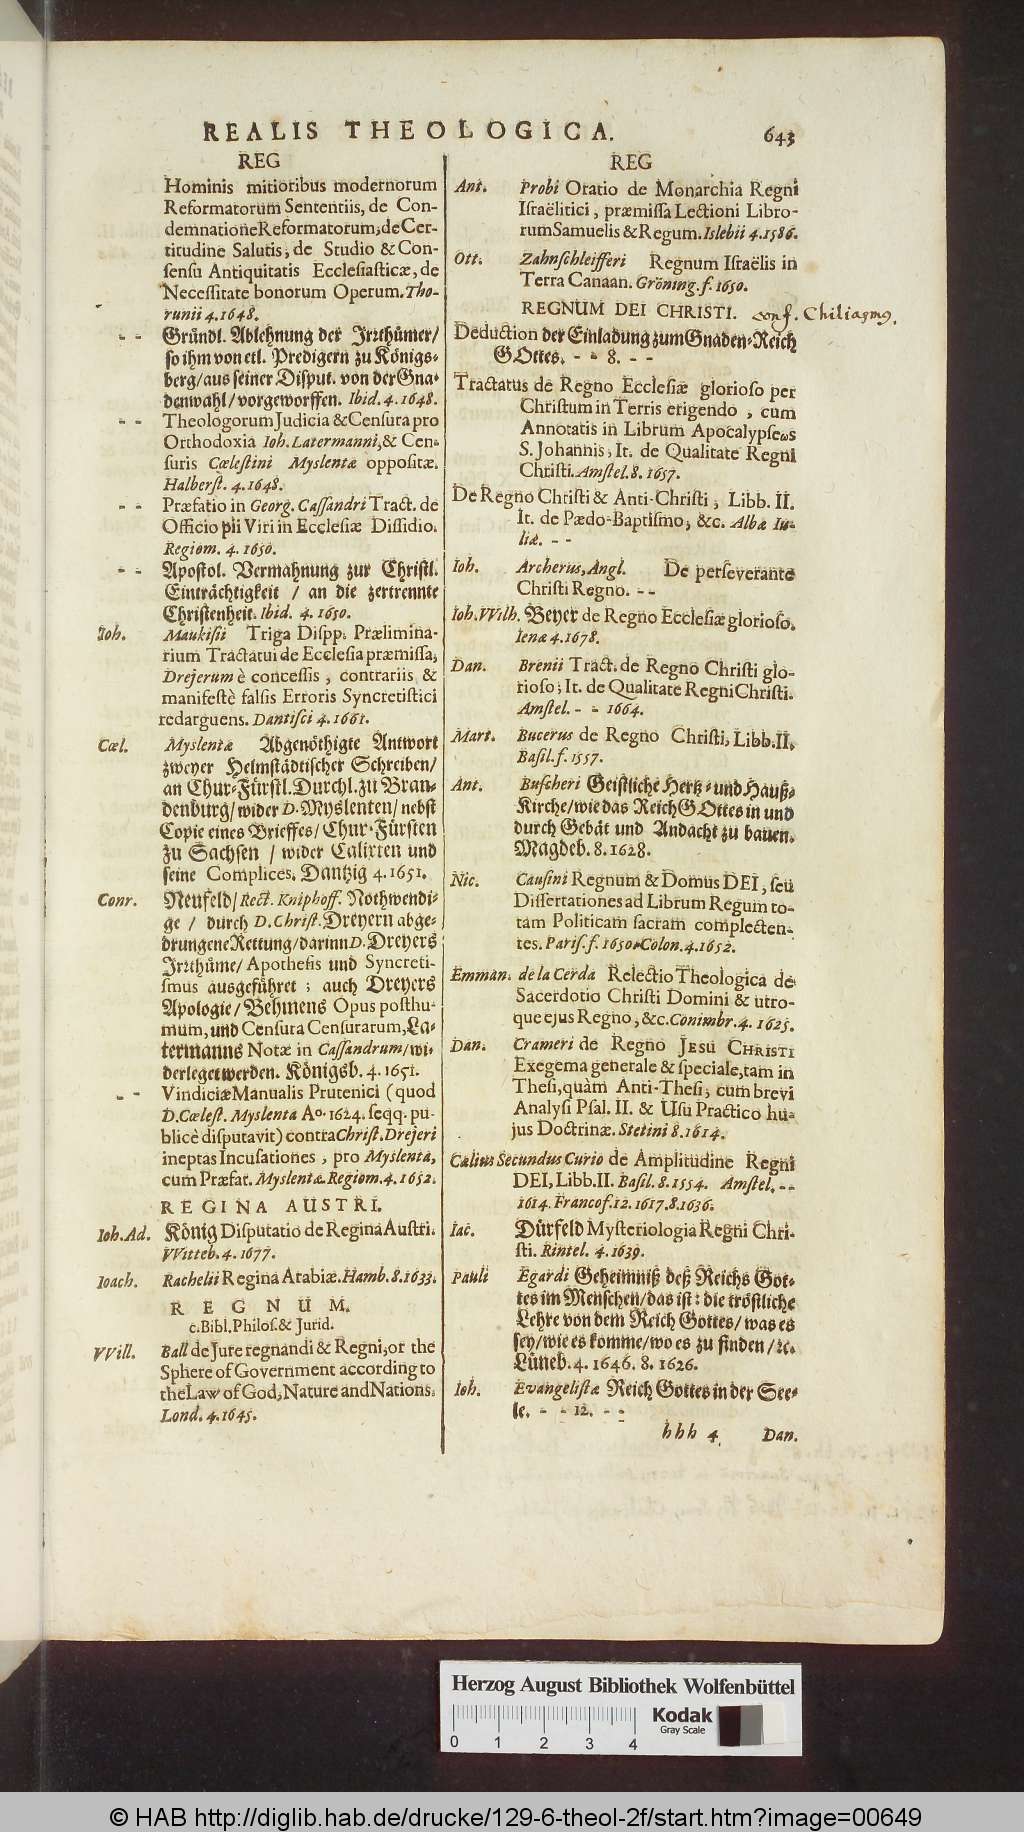 REALIS THEOLOGICA. 643
REG
Hominis mitioribus modernorum
Reformatorum Sententiis, de Con-
demnatione Reformatorum, de Cer-
titudine Salutis, de Studio & Con-
sensu Antiquitatis Ecclesiasticæ, de
Necessitate bonorum Operum. Tho-
runii 4. 1648.
- - Gründl. Ablehnung der Irrthümer/
so ihm von etl. Predigern zu Königs-
berg/ aus seiner Disput. von der Gna-
denwahl/ vorgeworffen. Ibid. 4. 1648.
- - Theologorum Judicia & Censura pro
Orthodoxia Ioh. Latermanni, & Cen-
suris Cœlestini Myslentæ oppositæ.
Halberst. 4. 1648.
- - Præfatio in Georg. Cassandri Tract. de
Officio pii Viri in Ecclesiæ Dissidio.
Regiom. 4. 1650.
- - Apostol. Vermahnung zur Christl.
Einträchtigkeit / an die zertrennte
Christenheit. Ibid. 4. 1650.
Ioh. Maukisii Triga Dispp. Prælimina-
rium Tractatui de Ecclesia præmissa,
Drejerum è concessis, contrariis &
manifestè falsis Erroris Syncretistici
redarguens. Dantisci 4. 1661.
Cœl. Myslentæ Abgenöthigte Antwort
zweyer Helmstädtischer Schreiben/
an Chur-Fürstl. Durchl. zu Bran-
denburg/ wider D. Myslenten/ nebst
Copie eines Brieffes/ Chur-Fürsten
zu Sachsen / wider Calixten und
seine Complices. Dantzig 4. 1651.
Conr. Neufeld/ Rect. Kniphoff. Nothwendi-
ge / durch D. Christ. Dreyern abge-
drungene Rettung/ darinn D. Dreyers
Irrthüme/ Apothesis und Syncreti-
smus ausgeführet; auch Dreyers
Apologie/ Behmens Opus posthu-
mum, und Censura Censurarum, La-
termanns Notæ in Cassandrum/ wi-
derleget werden. Königsb. 4. 1651.
- - Vindiciæ Manualis Prutenici (quod
D. Cælest. Myslenta Ao. 1624. seqq. pu-
blicè disputavit) contra Christ. Drejeri
ineptas Incusationes, pro Myslenta,
cum Præfat. Myslentæ. Regiom. 4. 1652.
REGINA AUSTRI.
Ioh. Ad. König Disputatio de Regina Austri.
VVitteb. 4. 1677.
Ioach. Rachelii Regina Arabiæ. Hamb. 8. 1633.
REGNUM.
c. Bibl. Philos. & Jurid.
VVill. Ball de Jure regnandi & Regni, or the
Sphere of Government according to
the Law of God, Nature and Nations.
Lond. 4. 1645.
REG
Ant. Probi Oratio de Monarchia Regni
Israëlitici, præmissa Lectioni Libro-
rum Samuelis & Regum. Islebii 4. 1586.
Ott. Zahnschleifferi Regnum Israëlis in
Terra Canaan. Gröning. f. 1650.
REGNUM DEI CHRISTI. conf. Chiliasmq.
Deduction der Einladung zum Gnaden-Reich
GOttes. - - 8. - -
Tractatus de Regno Ecclesiæ glorioso per
Christum in Terris erigendo, cum
Annotatis in Librum Apocalypseωs
S. Johannis, It. de Qualitate Regni
Christi. Amstel. 8. 1657.
De Regno Christi & Anti-Christi, Libb. II.
It. de Pædo-Baptismo, &c. Albæ Iu-
liæ. - -
Ioh. Archerus, Angl. De perseverante
Christi Regno. - -
Ioh. Wilh. Beyer de Regno Ecclesiæ glorioso.
Ienæ 4. 1678.
Dan. Brenii Tract. de Regno Christi glo-
rioso; It. de Qualitate Regni Christi.
Amstel. - - 1664.
Mart. Bucerus de Regno Christi, Libb. II.
Basil. f. 1557.
Ant. Buscheri Geistliche Hertz- und Hauß-
Kirche/ wie das Reich GOttes in und
durch Gebät und Andacht zu bauen.
Magdeb. 8. 1628.
Nic. Causini Regnum & Domus DEI, seu
Dissertationes ad Librum Regum to-
tam Politicam sacram complecten-
tes. Paris. f. 1650. Colon. 4. 1652.
Emman. de la Cerda Relectio Theologica de
Sacerdotio Christi Domini & utro-
que ejus Regno, &c. Conimbr. 4. 1625.
Dan. Crameri de Regno JESU CHRISTI
Exegema generale & speciale, tam in
Thesi, quàm Anti-Thesi, cum brevi
Analysi Psal. II. & Usu Practico hu-
jus Doctrinæ. Stetini 8. 1614.
Cælius Secundus Curio de Amplitudine Regni
DEI, Libb. II. Basil. 8. 1554. Amstel. - -
1614. Francof. 12. 1617. 8. 1636.
Iac. Dürfeld Mysteriologia Regni Chri-
sti. Rintel. 4. 1639.
Pauli Egardi Geheimniß deß Reichs Got-
tes im Menschen/ das ist: die tröstliche
Lehre von dem Reich Gottes/ was es
sey/ wie es komme/ wo es zu finden/ ꝛc.
Lüneb. 4. 1646. 8. 1626.
Ioh. Evangelistæ Reich Gottes in der See-
le. - - 12. - -
hhh 4 Dan.
Herzog August Bibliothek Wolfenbüttel
Kodak
Gray Scale
0 1 2 3 4
© HAB http://diglib.hab.de/drucke/129-6-theol-2f/start.htm?image=00649